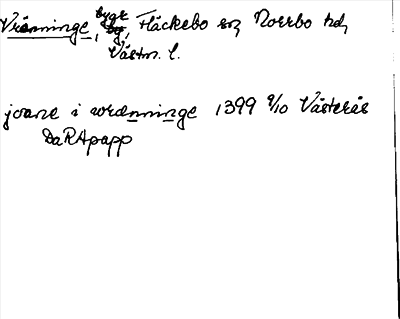 Vränninge, bygd, Fläckebo sn, Norrbo hd,
Västm. l.
joane i wrænninge 1399 9/10 Västerås
DaRApapp